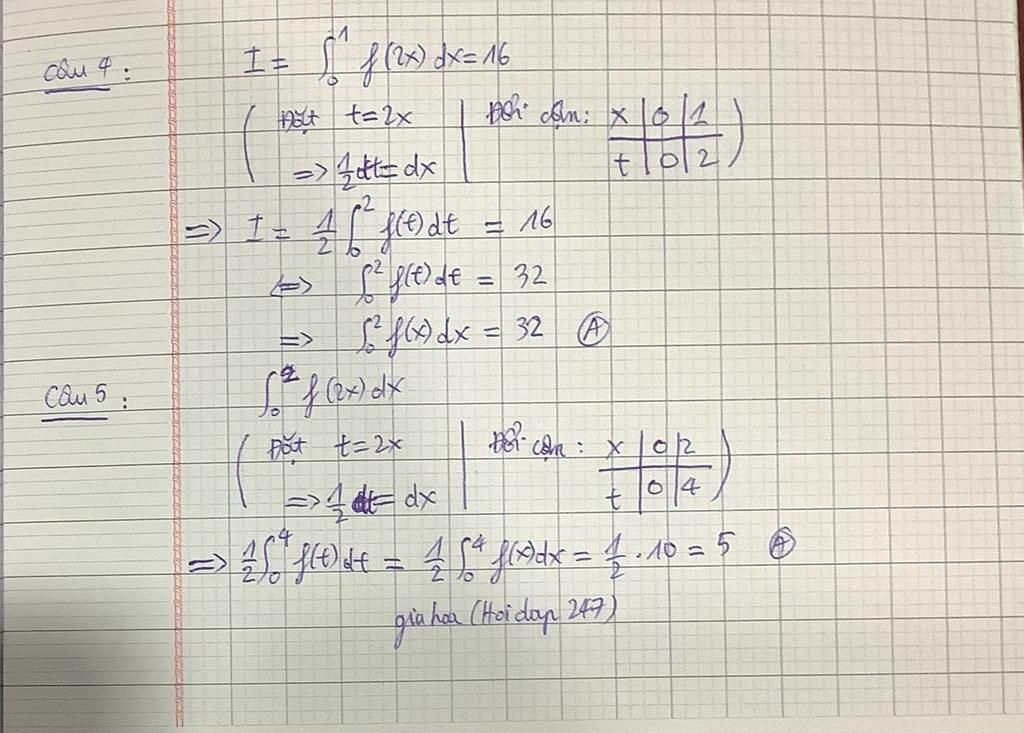 Câu 4 : I = ∫₀¹ f(2x) dx = 16
( Đặt t = 2x | Đổi cận : x | 0 | 1 )
=> 1/2 dt = dx t | 0 | 2
=> I = 1/2 ∫₀² f(t) dt = 16
<=> ∫₀² f(t) dt = 32
=> ∫₀² f(x) dx = 32 Ⓐ
Câu 5 : ∫₀² f(2x) dx
( Đặt t = 2x | Đổi cận : x | 0 | 2 )
=> 1/2 dt = dx t | 0 | 4
=> 1/2 ∫₀⁴ f(t) dt = 1/2 ∫₀⁴ f(x) dx = 1/2 . 10 = 5 Ⓐ
giahoa (Hoidap 247)